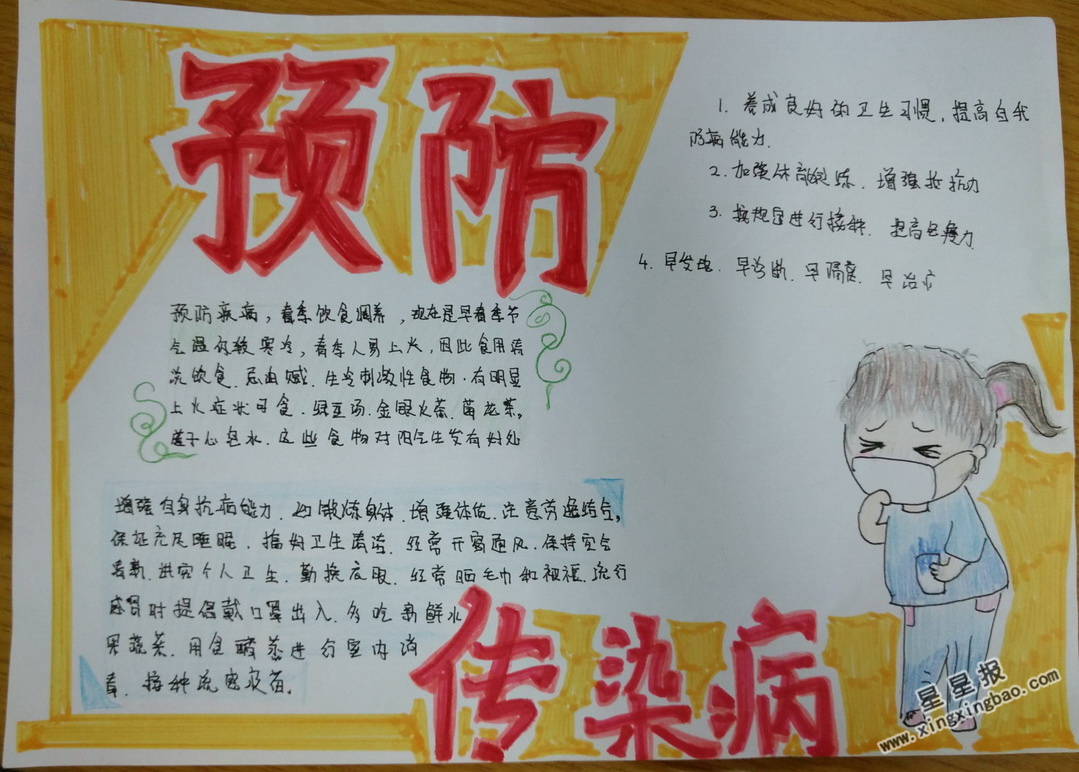 预防
1. 养成良好的卫生习惯，提高自我
防病能力.
2. 加强体育锻炼. 增强抵抗力
3. 按规定进行接种. 提高免疫力.
4. 早发现. 早诊断. 早隔离. 早治疗
预防疾病，春季饮食调养，现在是早春季节
气温仍较寒冷，春季人易上火，因此食用清
淡饮食. 忌油腻. 生冷刺激性食物. 有明显
上火症状可食. 绿豆汤. 金银火茶. 菊花茶.
莲子心泡水. 这些食物对阳气生发有好处
增强自身抗病能力. 锻炼身体. 增强体质. 注意劳逸结合,
保证充足睡眠. 搞好卫生清洁. 经常开窗通风. 保持空气
清新. 讲究个人卫生. 勤换衣服. 经常晒毛巾和被褥. 流行
感冒时提倡戴口罩出入. 多吃新鲜水
果蔬菜. 用食醋蒸进行室内消
毒. 接种流感疫苗.
传染病
星星报
www.xingxingbao.com